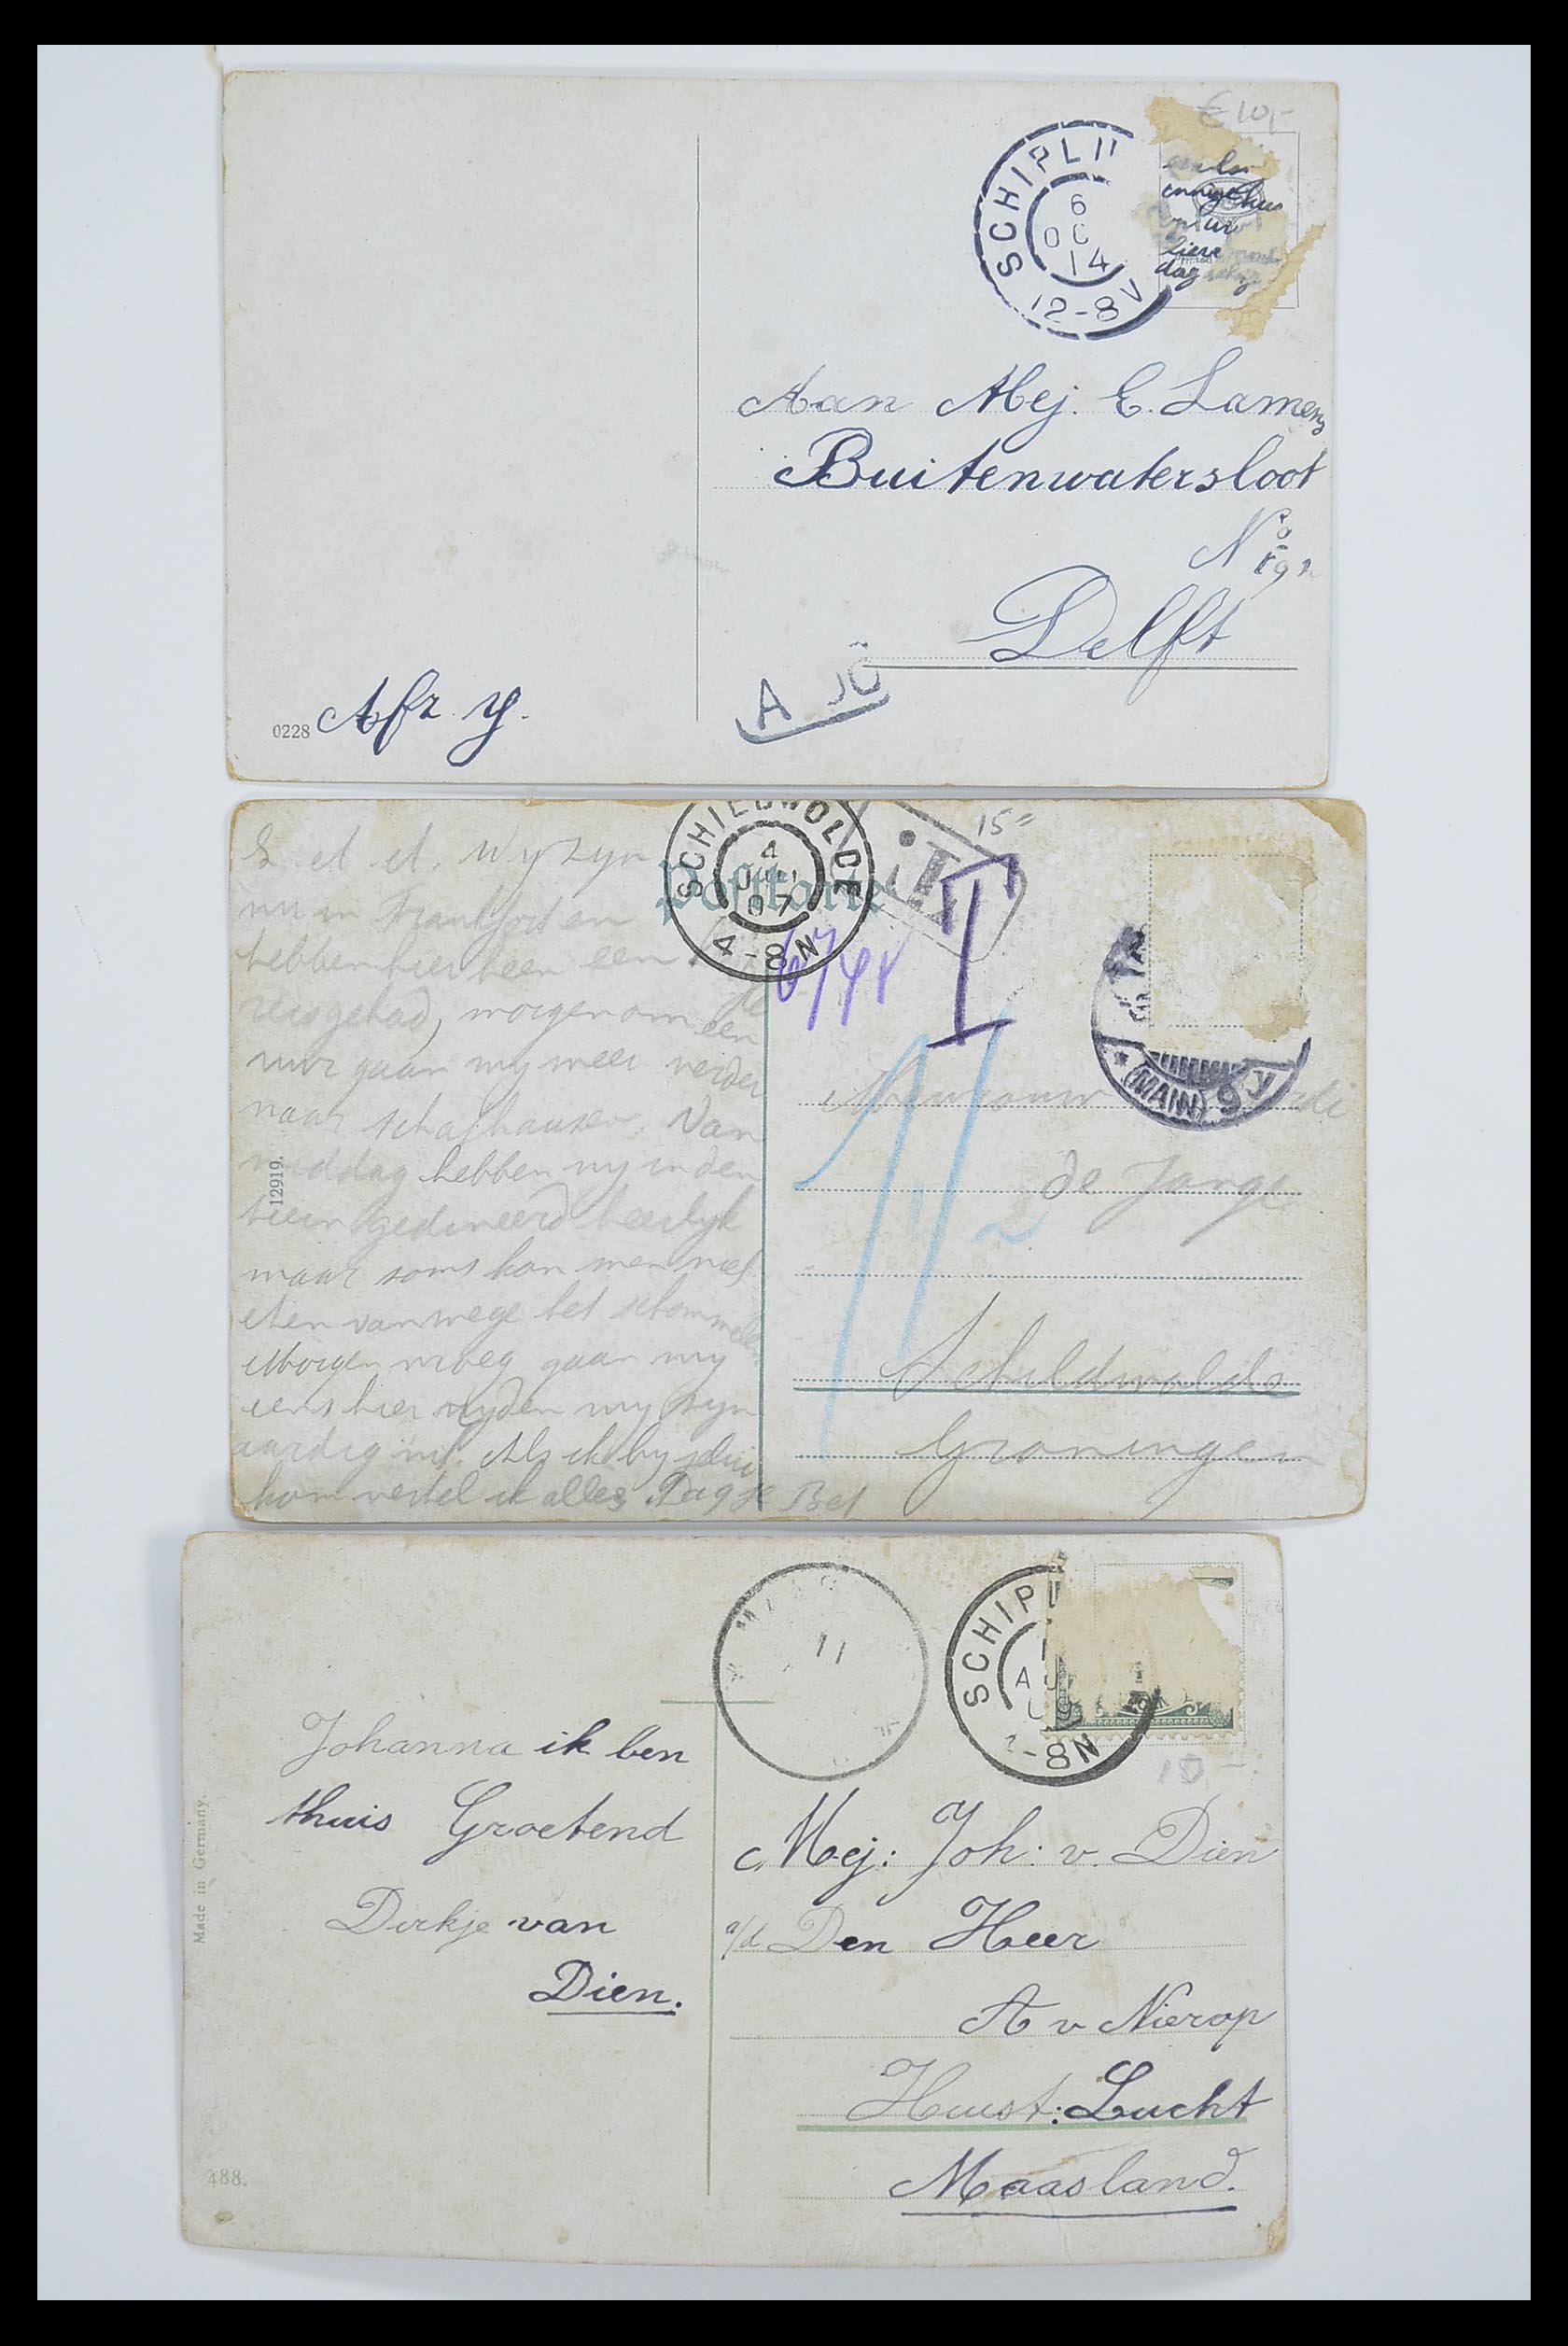 €10,-
SCHIPL
6
OC
14
12-8V
op uw
lieve
dag
Aan Mej. E. Lamens
Buitenwatersloot
No
Delft
A
0228 Afz. Y.
15=
SCHILDWOLDE
4
07
4-8N
Postkarte
T
(MAIN)
L. et et. Wy zyn
nu in Frankfort en
hebben hier heen een
reis gehad, morgen om een
uur gaan wy weer verder
naar Schafhausen. Van
middag hebben wy in den
trein gedineerd heerlyk
maar soms kon men niet
eten vanwege het schommelen
Morgen vroeg gaan wy
eens hier ryden wy zyn
aardig uit. Als ik by jelui
kom vertel ik alles Dag je Bet
12919.
Mevrouw
de Jonge
Schildwolde
Groningen
11
SCHIPL
-8N
10,-
Johanna ik ben
thuis Groetend
Dirkje van
Dien.
Made in Germany.
488.
Mej: Joh: v. Dien
a/d Den Heer
A v Nierop
Huist: Lucht
Maasland.